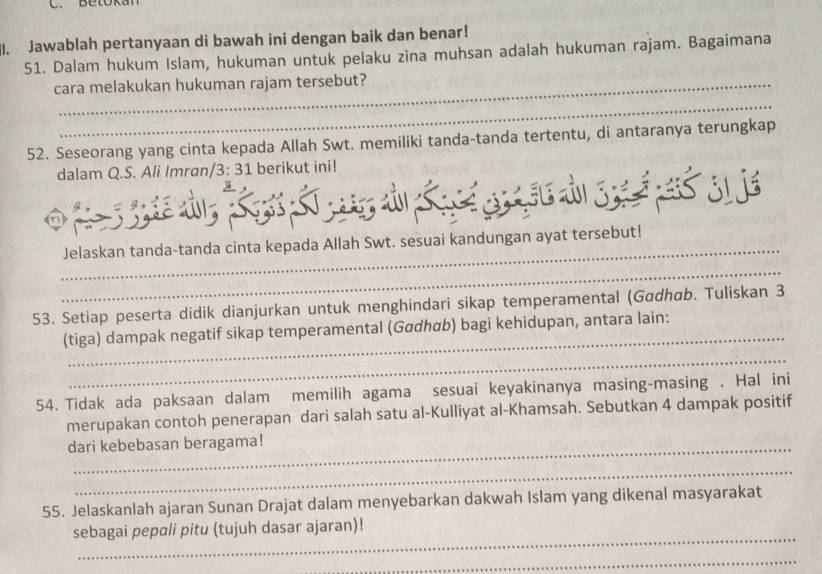 C. Betokan
II. Jawablah pertanyaan di bawah ini dengan baik dan benar!
51. Dalam hukum Islam, hukuman untuk pelaku zina muhsan adalah hukuman rajam. Bagaimana
cara melakukan hukuman rajam tersebut?
52. Seseorang yang cinta kepada Allah Swt. memiliki tanda-tanda tertentu, di antaranya terungkap
dalam Q.S. Ali Imran/3: 31 berikut ini!
قُلْ اِنْ كُنْتُمْ تُحِبُّوْنَ اللّٰهَ فَاتَّبِعُوْنِيْ يُحْبِبْكُمُ اللّٰهُ وَيَغْفِرْ لَكُمْ ذُنُوْبَكُمْ ۗ وَاللّٰهُ غَفُوْرٌ رَّحِيْمٌ ﴿٣١﴾
Jelaskan tanda-tanda cinta kepada Allah Swt. sesuai kandungan ayat tersebut!
53. Setiap peserta didik dianjurkan untuk menghindari sikap temperamental (Gadhab. Tuliskan 3
(tiga) dampak negatif sikap temperamental (Gadhab) bagi kehidupan, antara lain:
54. Tidak ada paksaan dalam memilih agama sesuai keyakinanya masing-masing . Hal ini
merupakan contoh penerapan dari salah satu al-Kulliyat al-Khamsah. Sebutkan 4 dampak positif
dari kebebasan beragama!
55. Jelaskanlah ajaran Sunan Drajat dalam menyebarkan dakwah Islam yang dikenal masyarakat
sebagai pepali pitu (tujuh dasar ajaran)!